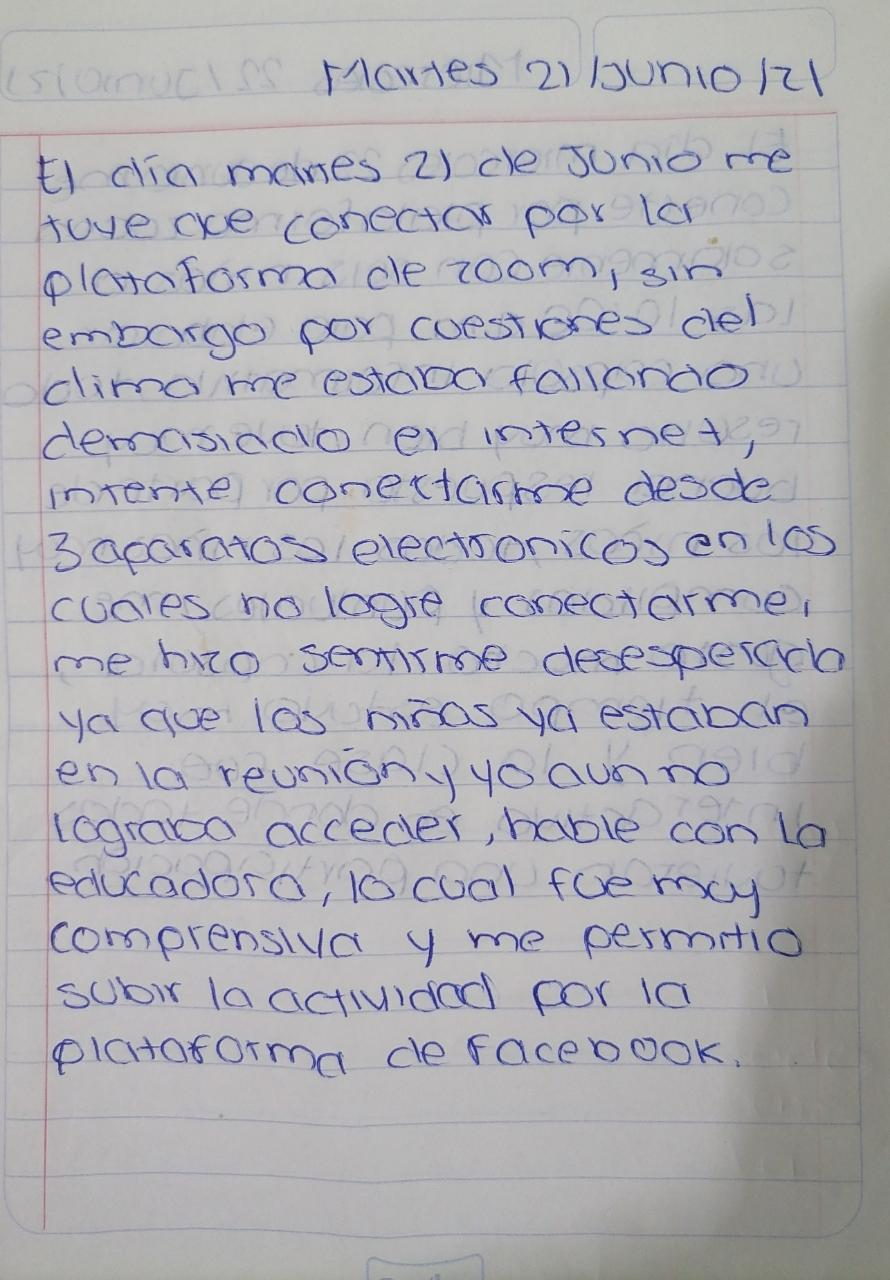 Martes 21/Junio/21
El día martes 21 de Junio me
tuve que conectar por la
plataforma de zoom, sin
embargo por cuestiones del
clima me estaba fallando
demasiado el internet,
intente conectarme desde
3 aparatos electronicos en los
cuales no logre conectarme,
me hizo sentirme desesperada
ya que los niños ya estaban
en la reunión y yo aun no
lograba acceder, hable con la
educadora, lo cual fue muy
comprensiva y me permitio
subir la actividad por la
plataforma de facebook.